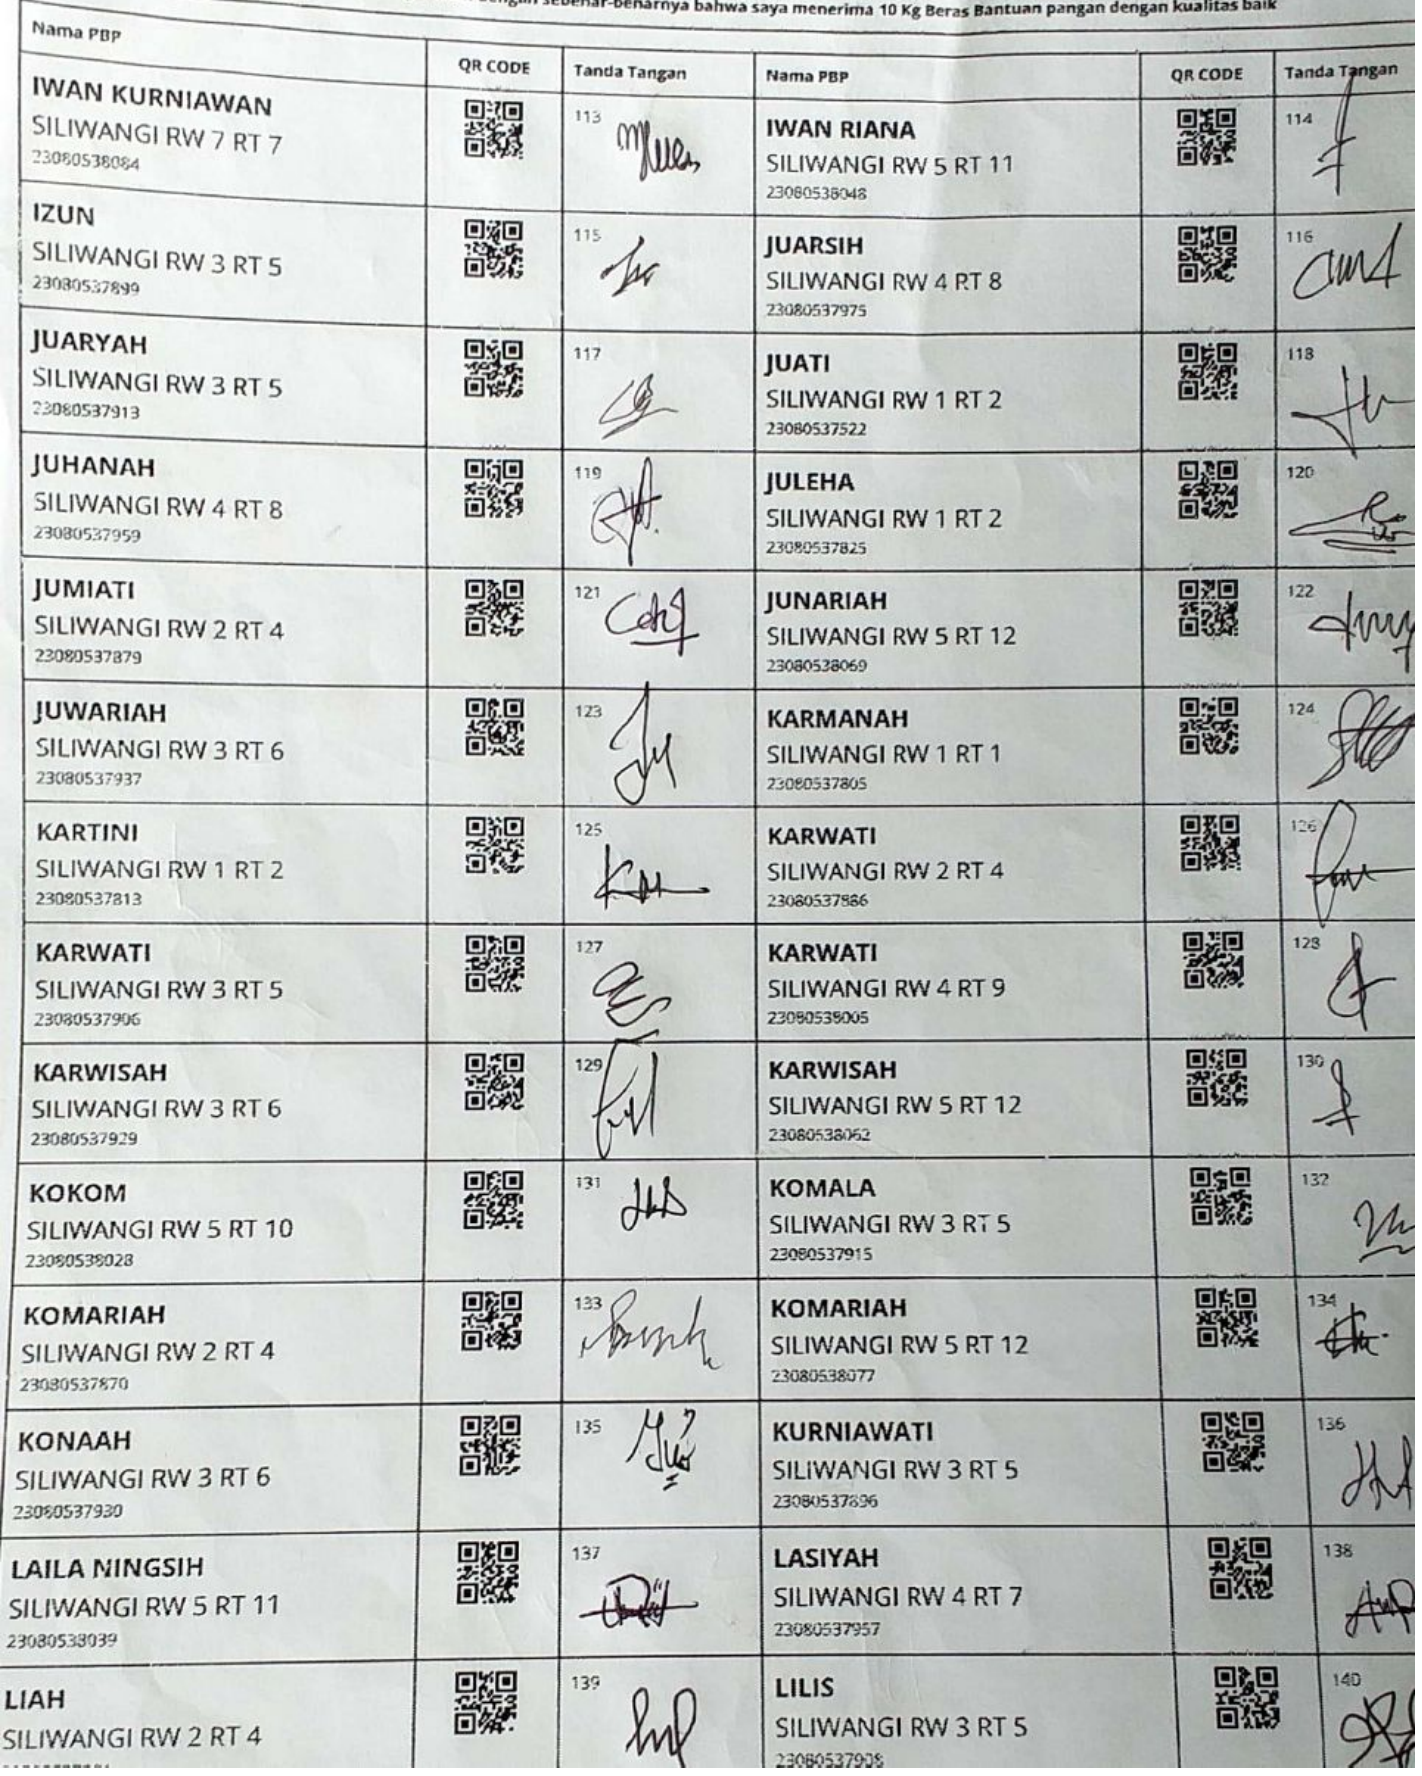 sebenar-benarnya bahwa saya menerima 10 Kg Beras Bantuan pangan dengan kualitas baik
Nama PBP QR CODE Tanda Tangan Nama PBP QR CODE Tanda Tangan
IWAN KURNIAWAN
SILIWANGI RW 7 RT 7
23080538084
113
IWAN RIANA
SILIWANGI RW 5 RT 11
23080538048
114
IZUN
SILIWANGI RW 3 RT 5
23080537899
115
JUARSIH
SILIWANGI RW 4 RT 8
23080537975
116
JUARYAH
SILIWANGI RW 3 RT 5
23080537913
117
JUATI
SILIWANGI RW 1 RT 2
23080537522
118
JUHANAH
SILIWANGI RW 4 RT 8
23080537959
119
JULEHA
SILIWANGI RW 1 RT 2
23080537825
120
JUMIATI
SILIWANGI RW 2 RT 4
23080537879
121
JUNARIAH
SILIWANGI RW 5 RT 12
23080538069
122
JUWARIAH
SILIWANGI RW 3 RT 6
23080537937
123
KARMANAH
SILIWANGI RW 1 RT 1
23080537805
124
KARTINI
SILIWANGI RW 1 RT 2
23080537813
125
KARWATI
SILIWANGI RW 2 RT 4
23080537886
126
KARWATI
SILIWANGI RW 3 RT 5
23080537906
127
KARWATI
SILIWANGI RW 4 RT 9
23080538005
128
KARWISAH
SILIWANGI RW 3 RT 6
23080537929
129
KARWISAH
SILIWANGI RW 5 RT 12
23080538062
130
KOKOM
SILIWANGI RW 5 RT 10
23080538028
131
KOMALA
SILIWANGI RW 3 RT 5
23080537915
132
KOMARIAH
SILIWANGI RW 2 RT 4
23080537870
133
KOMARIAH
SILIWANGI RW 5 RT 12
23080538077
134
KONAAH
SILIWANGI RW 3 RT 6
23080537930
135
KURNIAWATI
SILIWANGI RW 3 RT 5
23080537896
136
LAILA NINGSIH
SILIWANGI RW 5 RT 11
23080538039
137
LASIYAH
SILIWANGI RW 4 RT 7
23080537957
138
LIAH
SILIWANGI RW 2 RT 4
139
LILIS
SILIWANGI RW 3 RT 5
23080537908
140